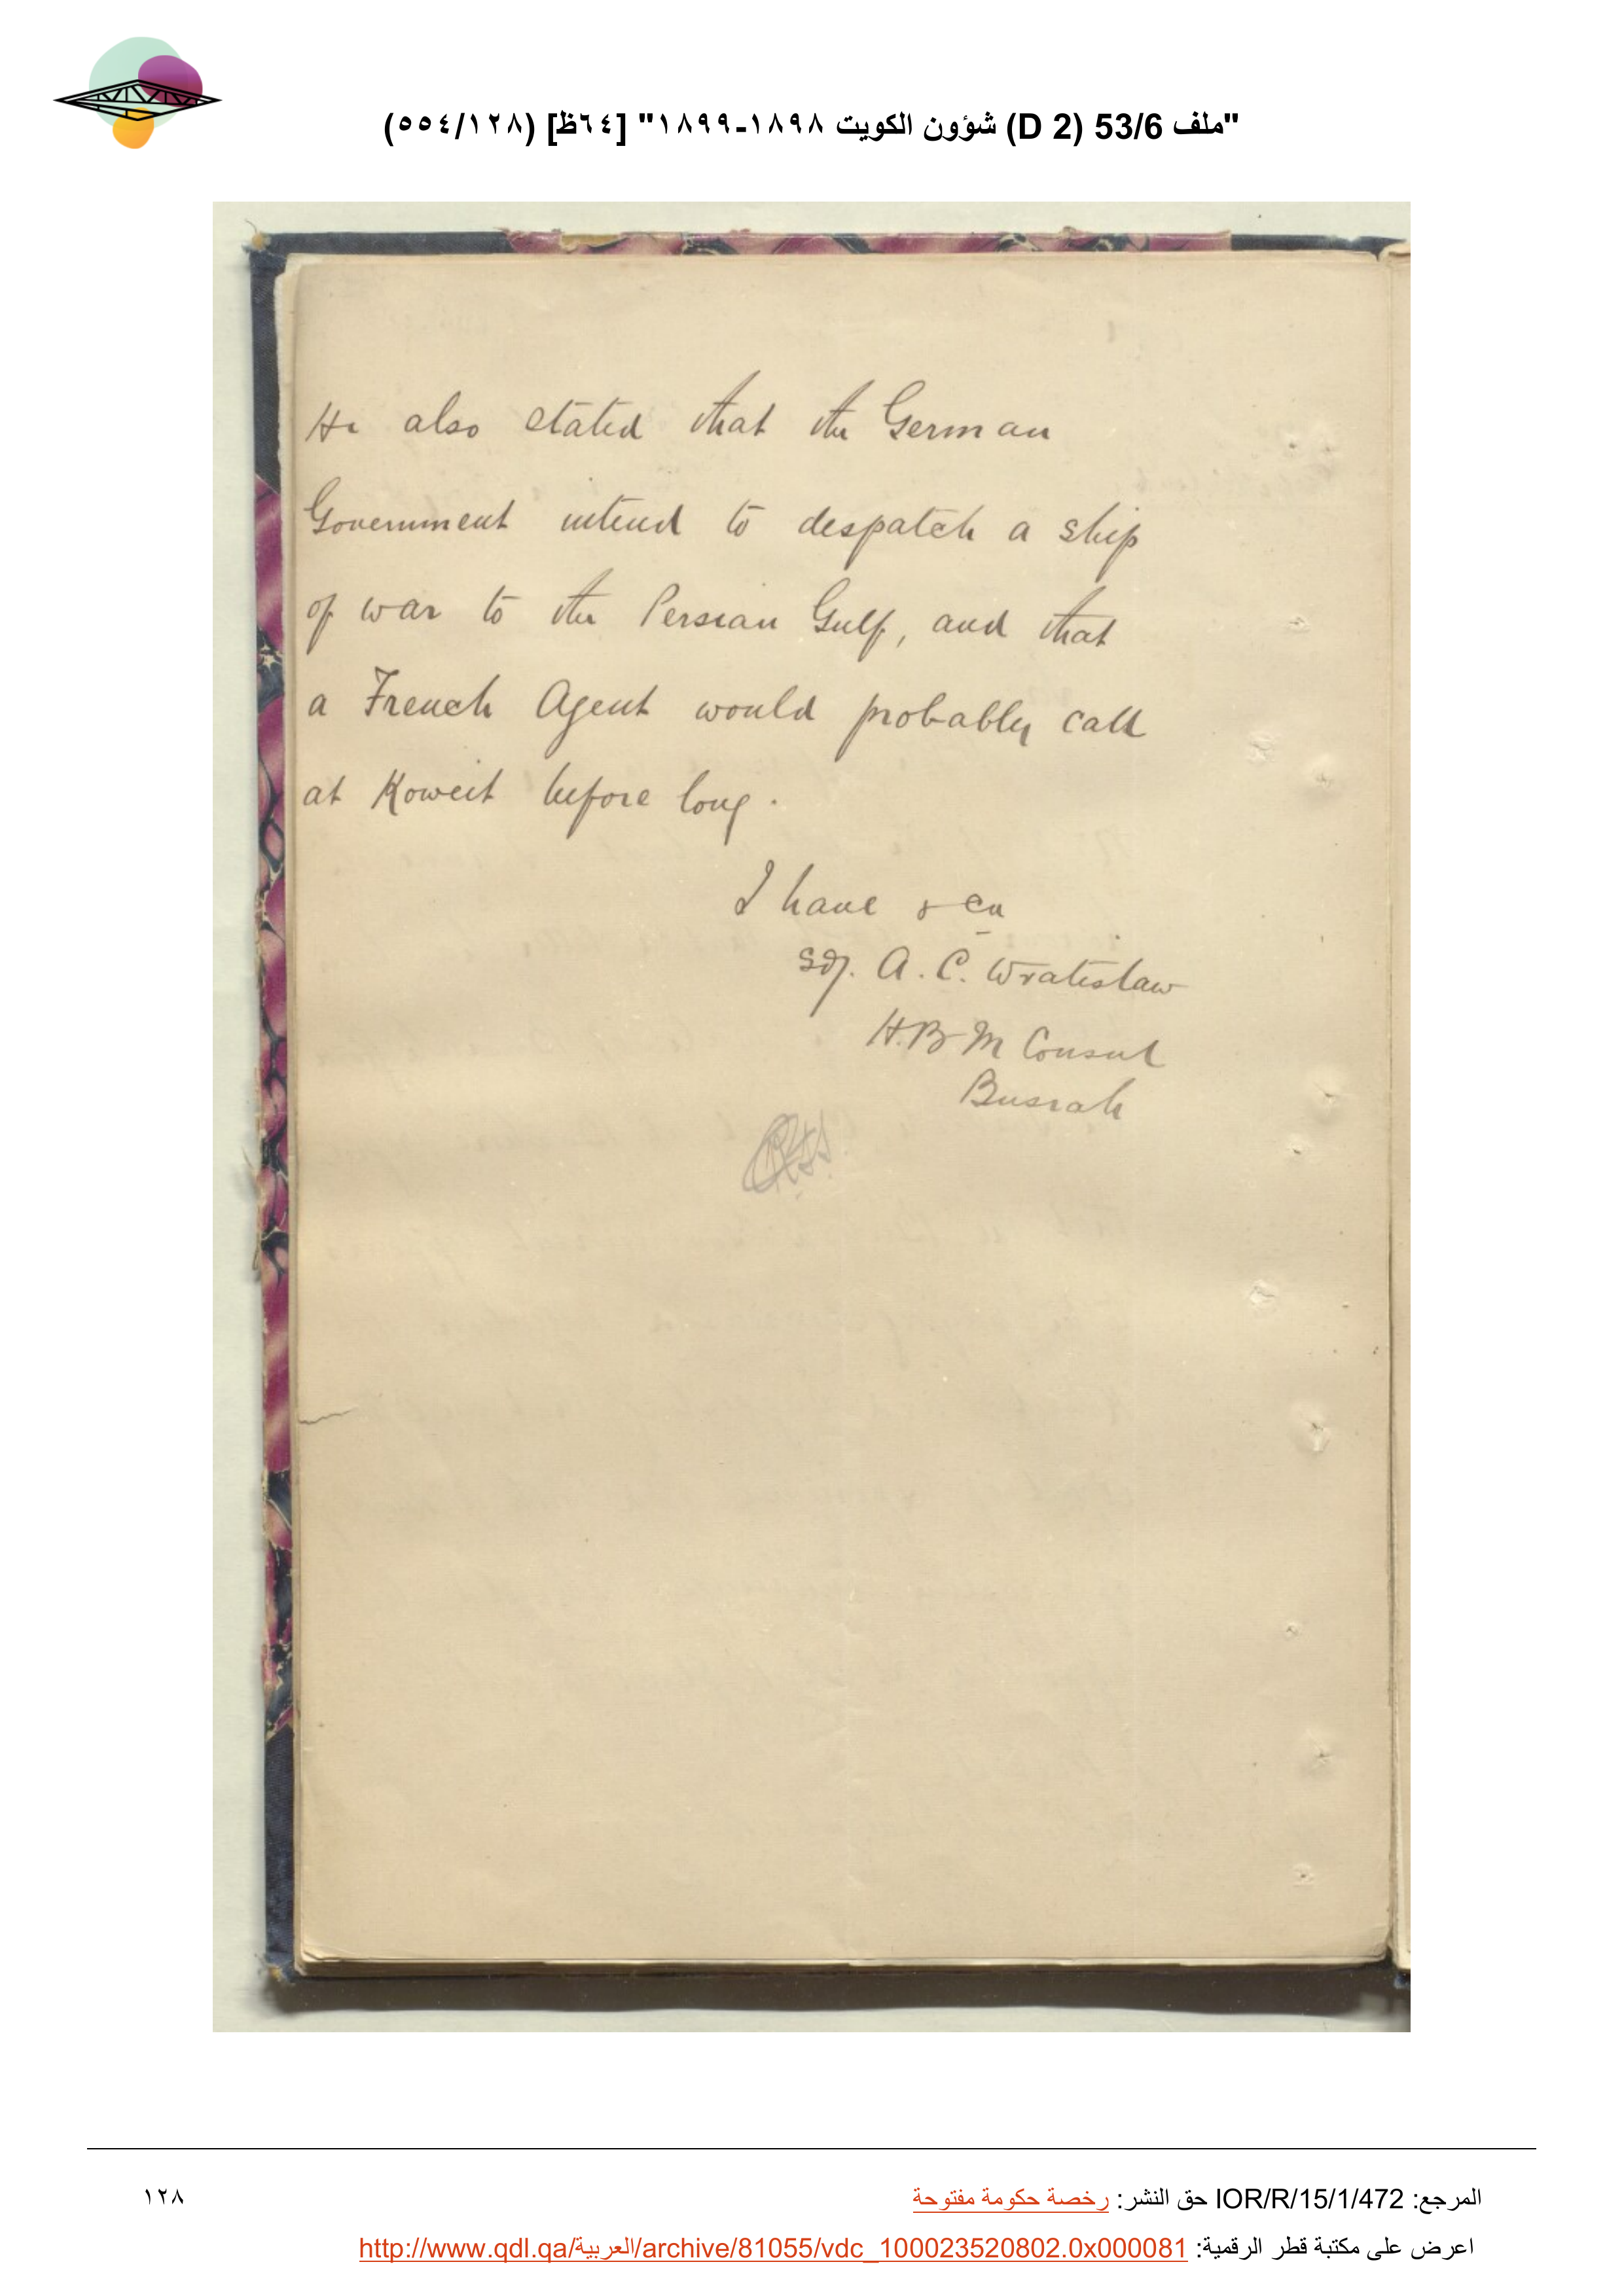 "ملف 53/6 (D 2) شؤون الكويت ١٨٩٨-١٨٩٩" [٦٤ظ] (١٢٨/٥٥٤)
He also stated that the German
Government intend to despatch a ship
of war to the Persian Gulf, and that
a French Agent would probably call
at Koweit before long.
I have &
Sd/. A. C. Wratislaw
H.B M Consul
Busrah
المرجع: IOR/R/15/1/472 حق النشر: رخصة حكومة مفتوحة
١٢٨
اعرض على مكتبة قطر الرقمية: http://www.qdl.qa/العربية/archive/81055/vdc_100023520802.0x000081